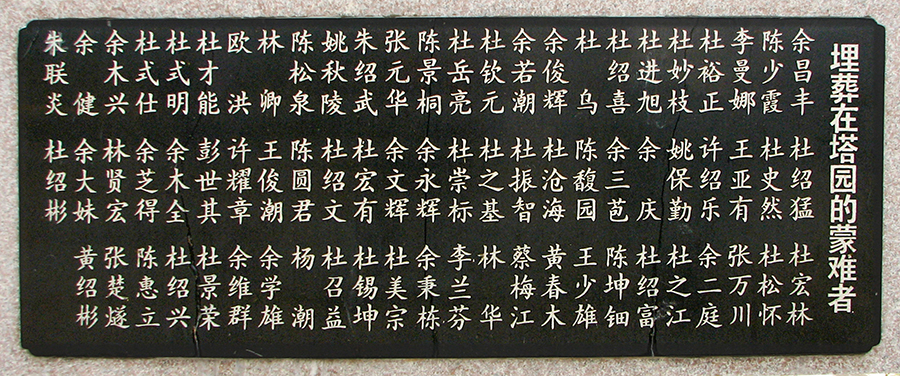 埋葬在塔园的蒙难者
余昌丰 杜绍猛 杜宏林
陈少霞 杜史然 杜松怀
李曼娜 王亚有 张万川
杜裕正 许绍乐 余二庭
杜妙枝 姚保勤 杜之江
杜进旭 余庆 杜绍富
杜绍喜 余三芭 陈坤钿
杜乌 陈馥园 王少雄
余俊辉 杜沧海 黄春木
余若潮 杜振智 蔡梅江
杜钦元 杜之基 林华
杜岳亮 杜崇标 李兰芬
陈景桐 余永辉 余秉栋
张元华 余文辉 杜美宗
朱绍武 杜宏有 杜锡坤
姚秋陵 杜绍文 杜召益
陈松泉 陈圆君 杨潮
林卿 王俊潮 余学雄
欧洪 许耀章 余维群
杜才能 彭世其 杜景荣
杜式明 余木全 杜绍兴
杜式仕 余芝得 陈惠立
余木兴 林贤宏 张楚燧
余健 余大妹 黄绍彬
朱联炎 杜绍彬